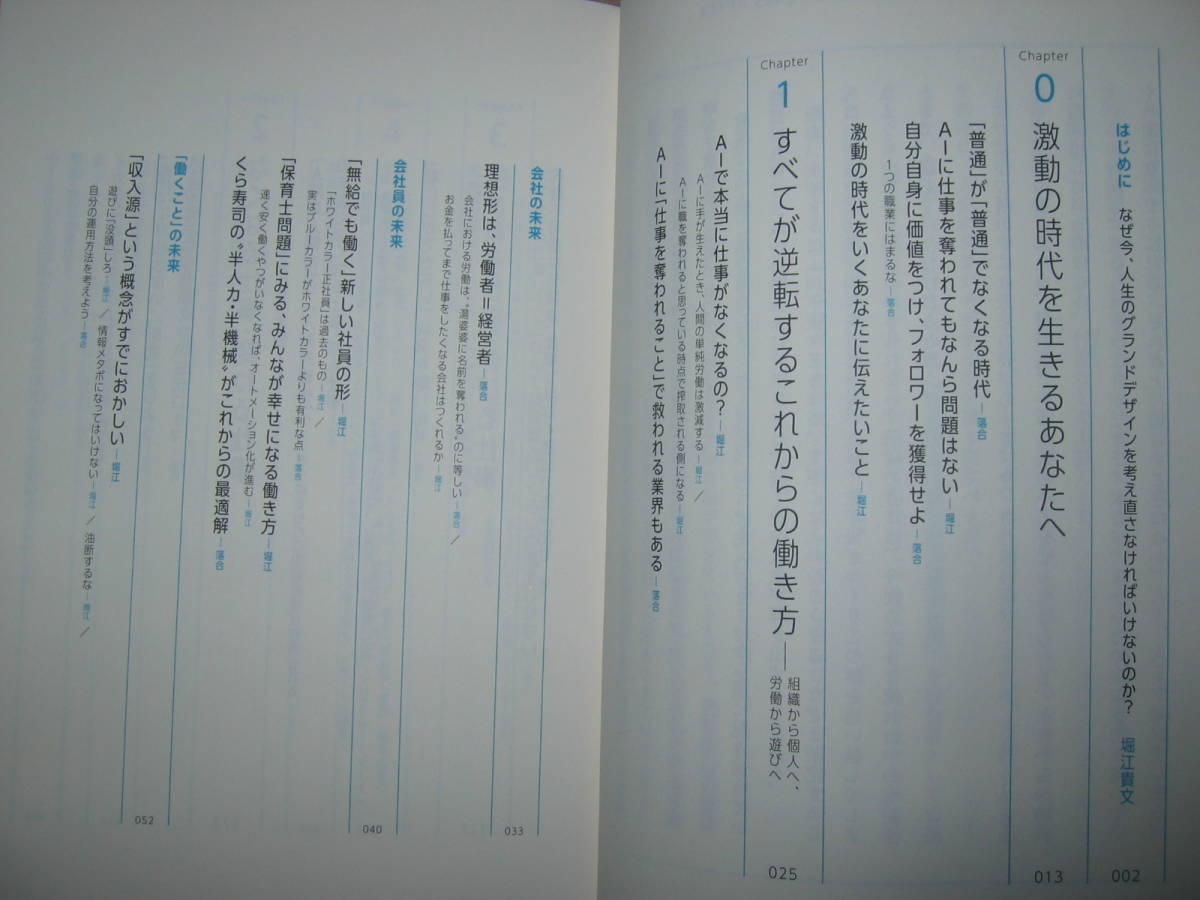 はじめに なぜ今、人生のグランドデザインを考え直さなければいけないのか? 堀江貴文
002
Chapter
0 激動の時代を生きるあなたへ
013
「普通」が「普通」でなくなる時代―落合
AIに仕事を奪われてもなんら問題はない―堀江
自分自身に価値をつけ、フォロワーを獲得せよ―落合
1つの職業にはまるな―落合
激動の時代をいくあなたに伝えたいこと―堀江
Chapter
1 すべてが逆転するこれからの働き方―
組織から個人へ、
労働から遊びへ
025
AIで本当に仕事がなくなるの?―堀江
AIに手が生えたとき、人間の単純労働は激減する―堀江/
AIに職を奪われると思っている時点で搾取される側になる―堀江
AIに「仕事を奪われること」で救われる業界もある―落合
会社の未来
033
理想形は、労働者=経営者―落合
会社における労働は、“湯婆婆に名前を奪われる”のに等しい―落合/
お金を払ってまで仕事をしたくなる会社はつくれるか―堀江
会社員の未来
040
「無給でも働く」新しい社員の形―堀江
「ホワイトカラー正社員」は過去のもの―堀江/
実はブルーカラーがホワイトカラーよりも有利な点―落合
「保育士問題」にみる、みんなが幸せになる働き方―堀江
速く安く働くやつがいなくなれば、オートメーション化が進む―堀江
くら寿司の“半人力・半機械”がこれからの最適解―落合
「働くこと」の未来
052
「収入源」という概念がすでにおかしい―堀江
遊びに「没頭」しろ―堀江/情報メタボになってはいけない―堀江/油断するな―堀江/
自分の運用方法を考えよう―落合